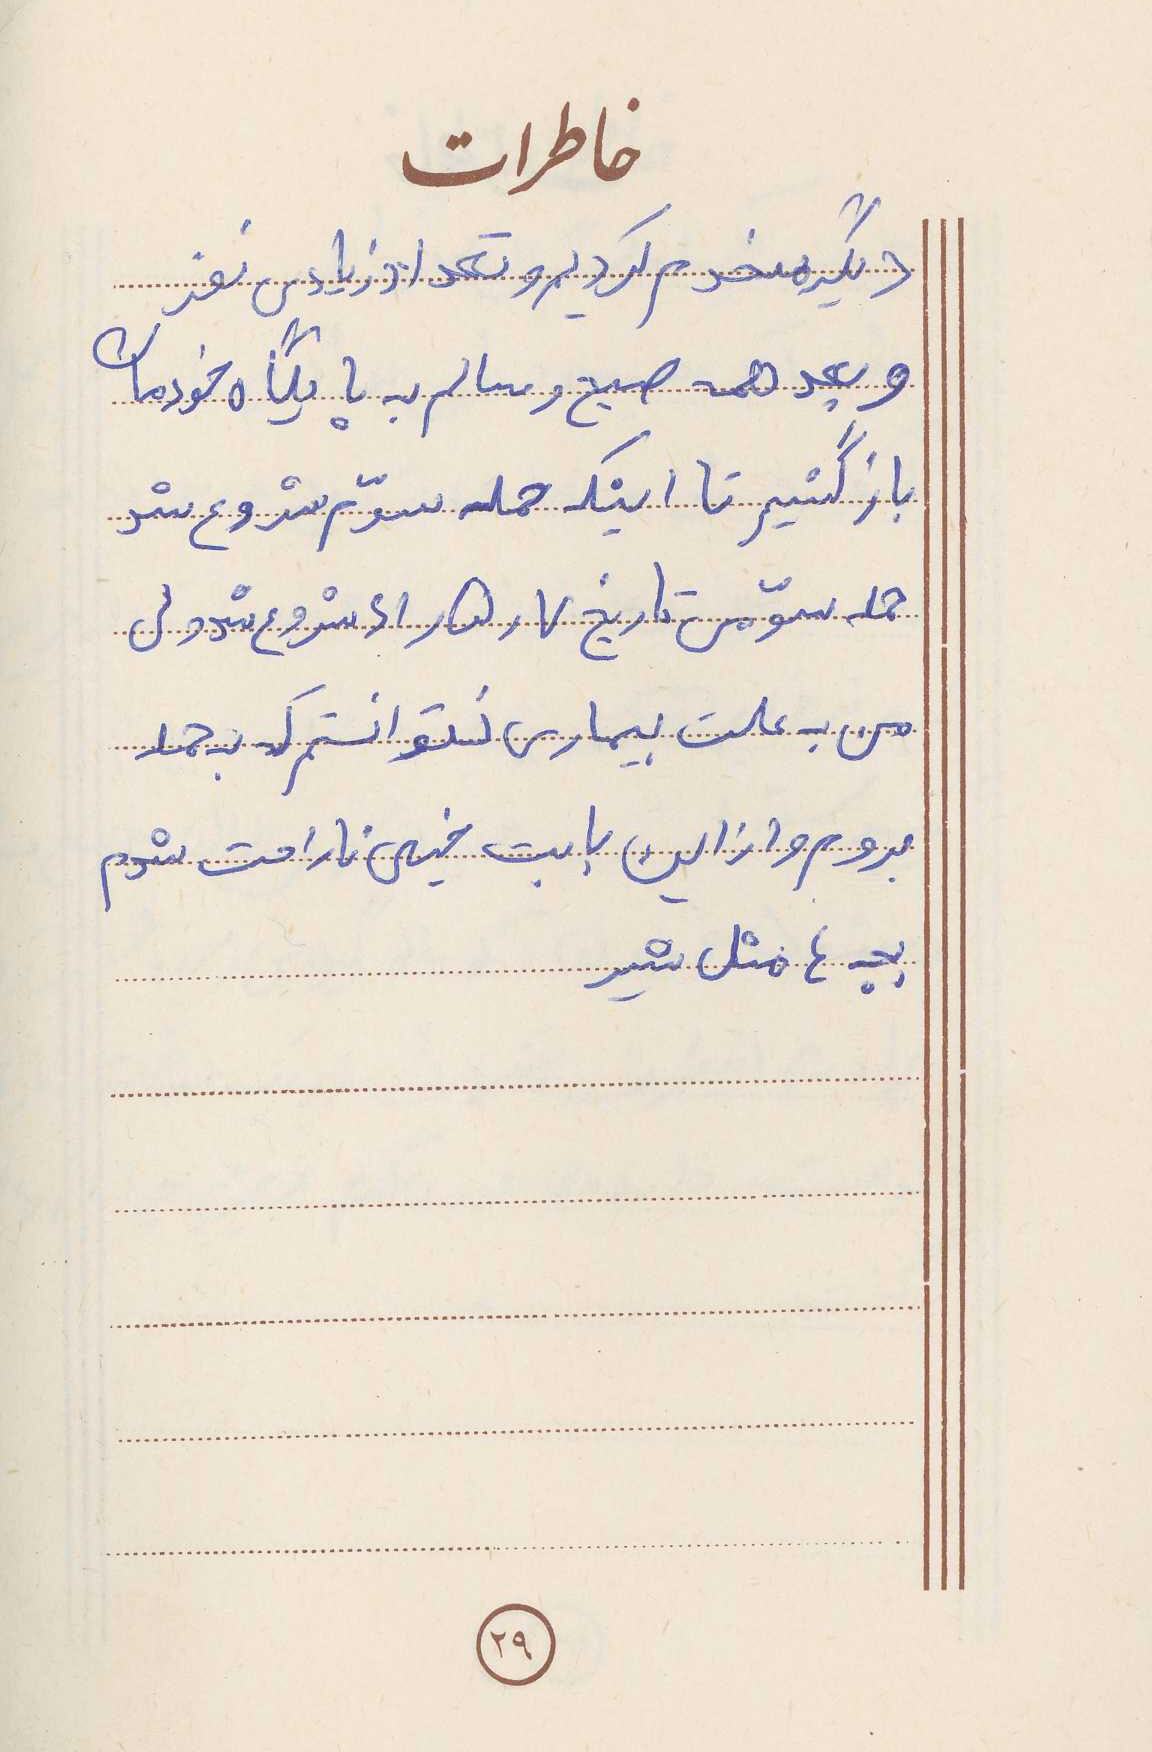 خاطرات
دیگر منهدم کردیم و تعداد زیادی نفر
و بعد همه صیح و سالم به پایگاه خودمان
بازگشتیم تا اینکه حمله سوّم شروع شد
حمله سوّم در تاریخ شروع شد ولی
من به علت بیماری نتوانستم که به حمله
بروم و از این بابت خیلی ناراحت شدم
بچه ها مثل شیر
۲۹